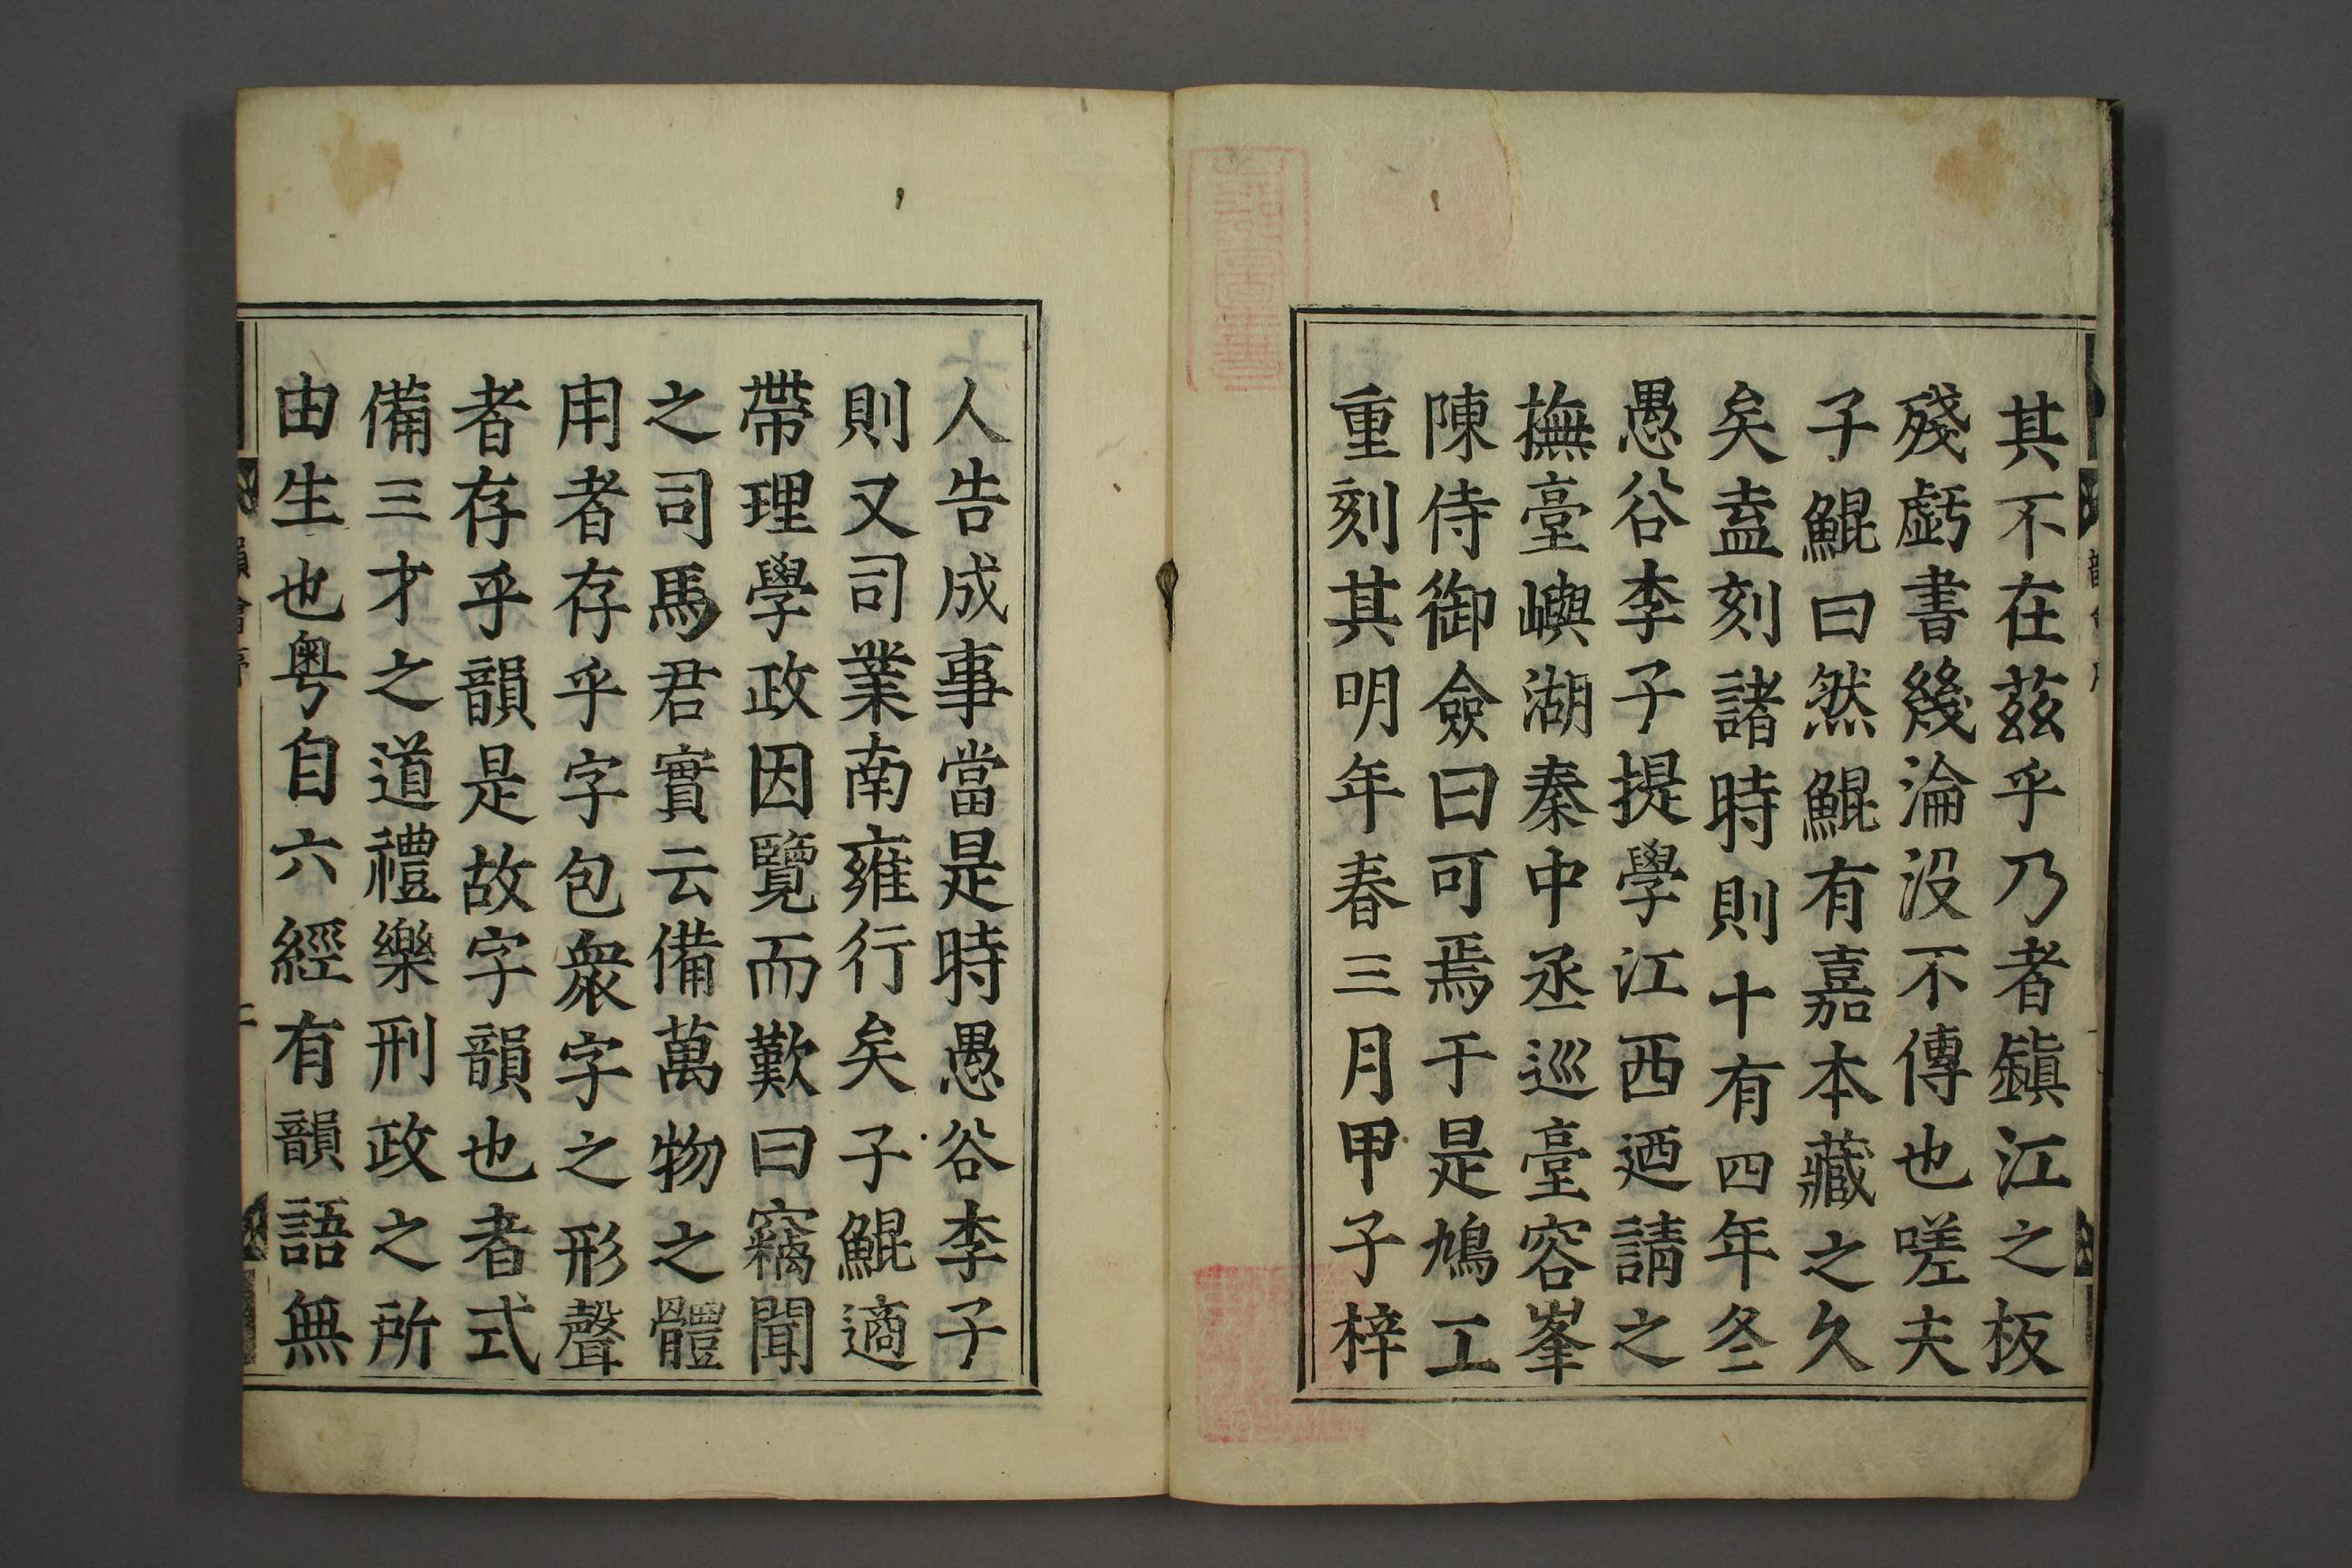 其不在茲乎乃者鎭江之板
殘虧書幾淪沒不傳也嗟夫
子鯤曰然鯤有嘉本藏之久
矣盍刻諸時則十有四年冬
愚谷李子提學江西迺請之
撫臺嶼湖秦中丞巡臺容峯
陳侍御僉曰可焉于是鳩工
重刻其明年春三月甲子梓
人告成事當是時愚谷李子
則又司業南雍行矣子鯤適
帶理學政因覽而歎曰竊聞
之司馬君實云備萬物之體
用者存乎字包衆字之形聲
者存乎韻是故字韻也者式
備三才之道禮樂刑政之所
由生也粤自六經有韻語無
韻會序